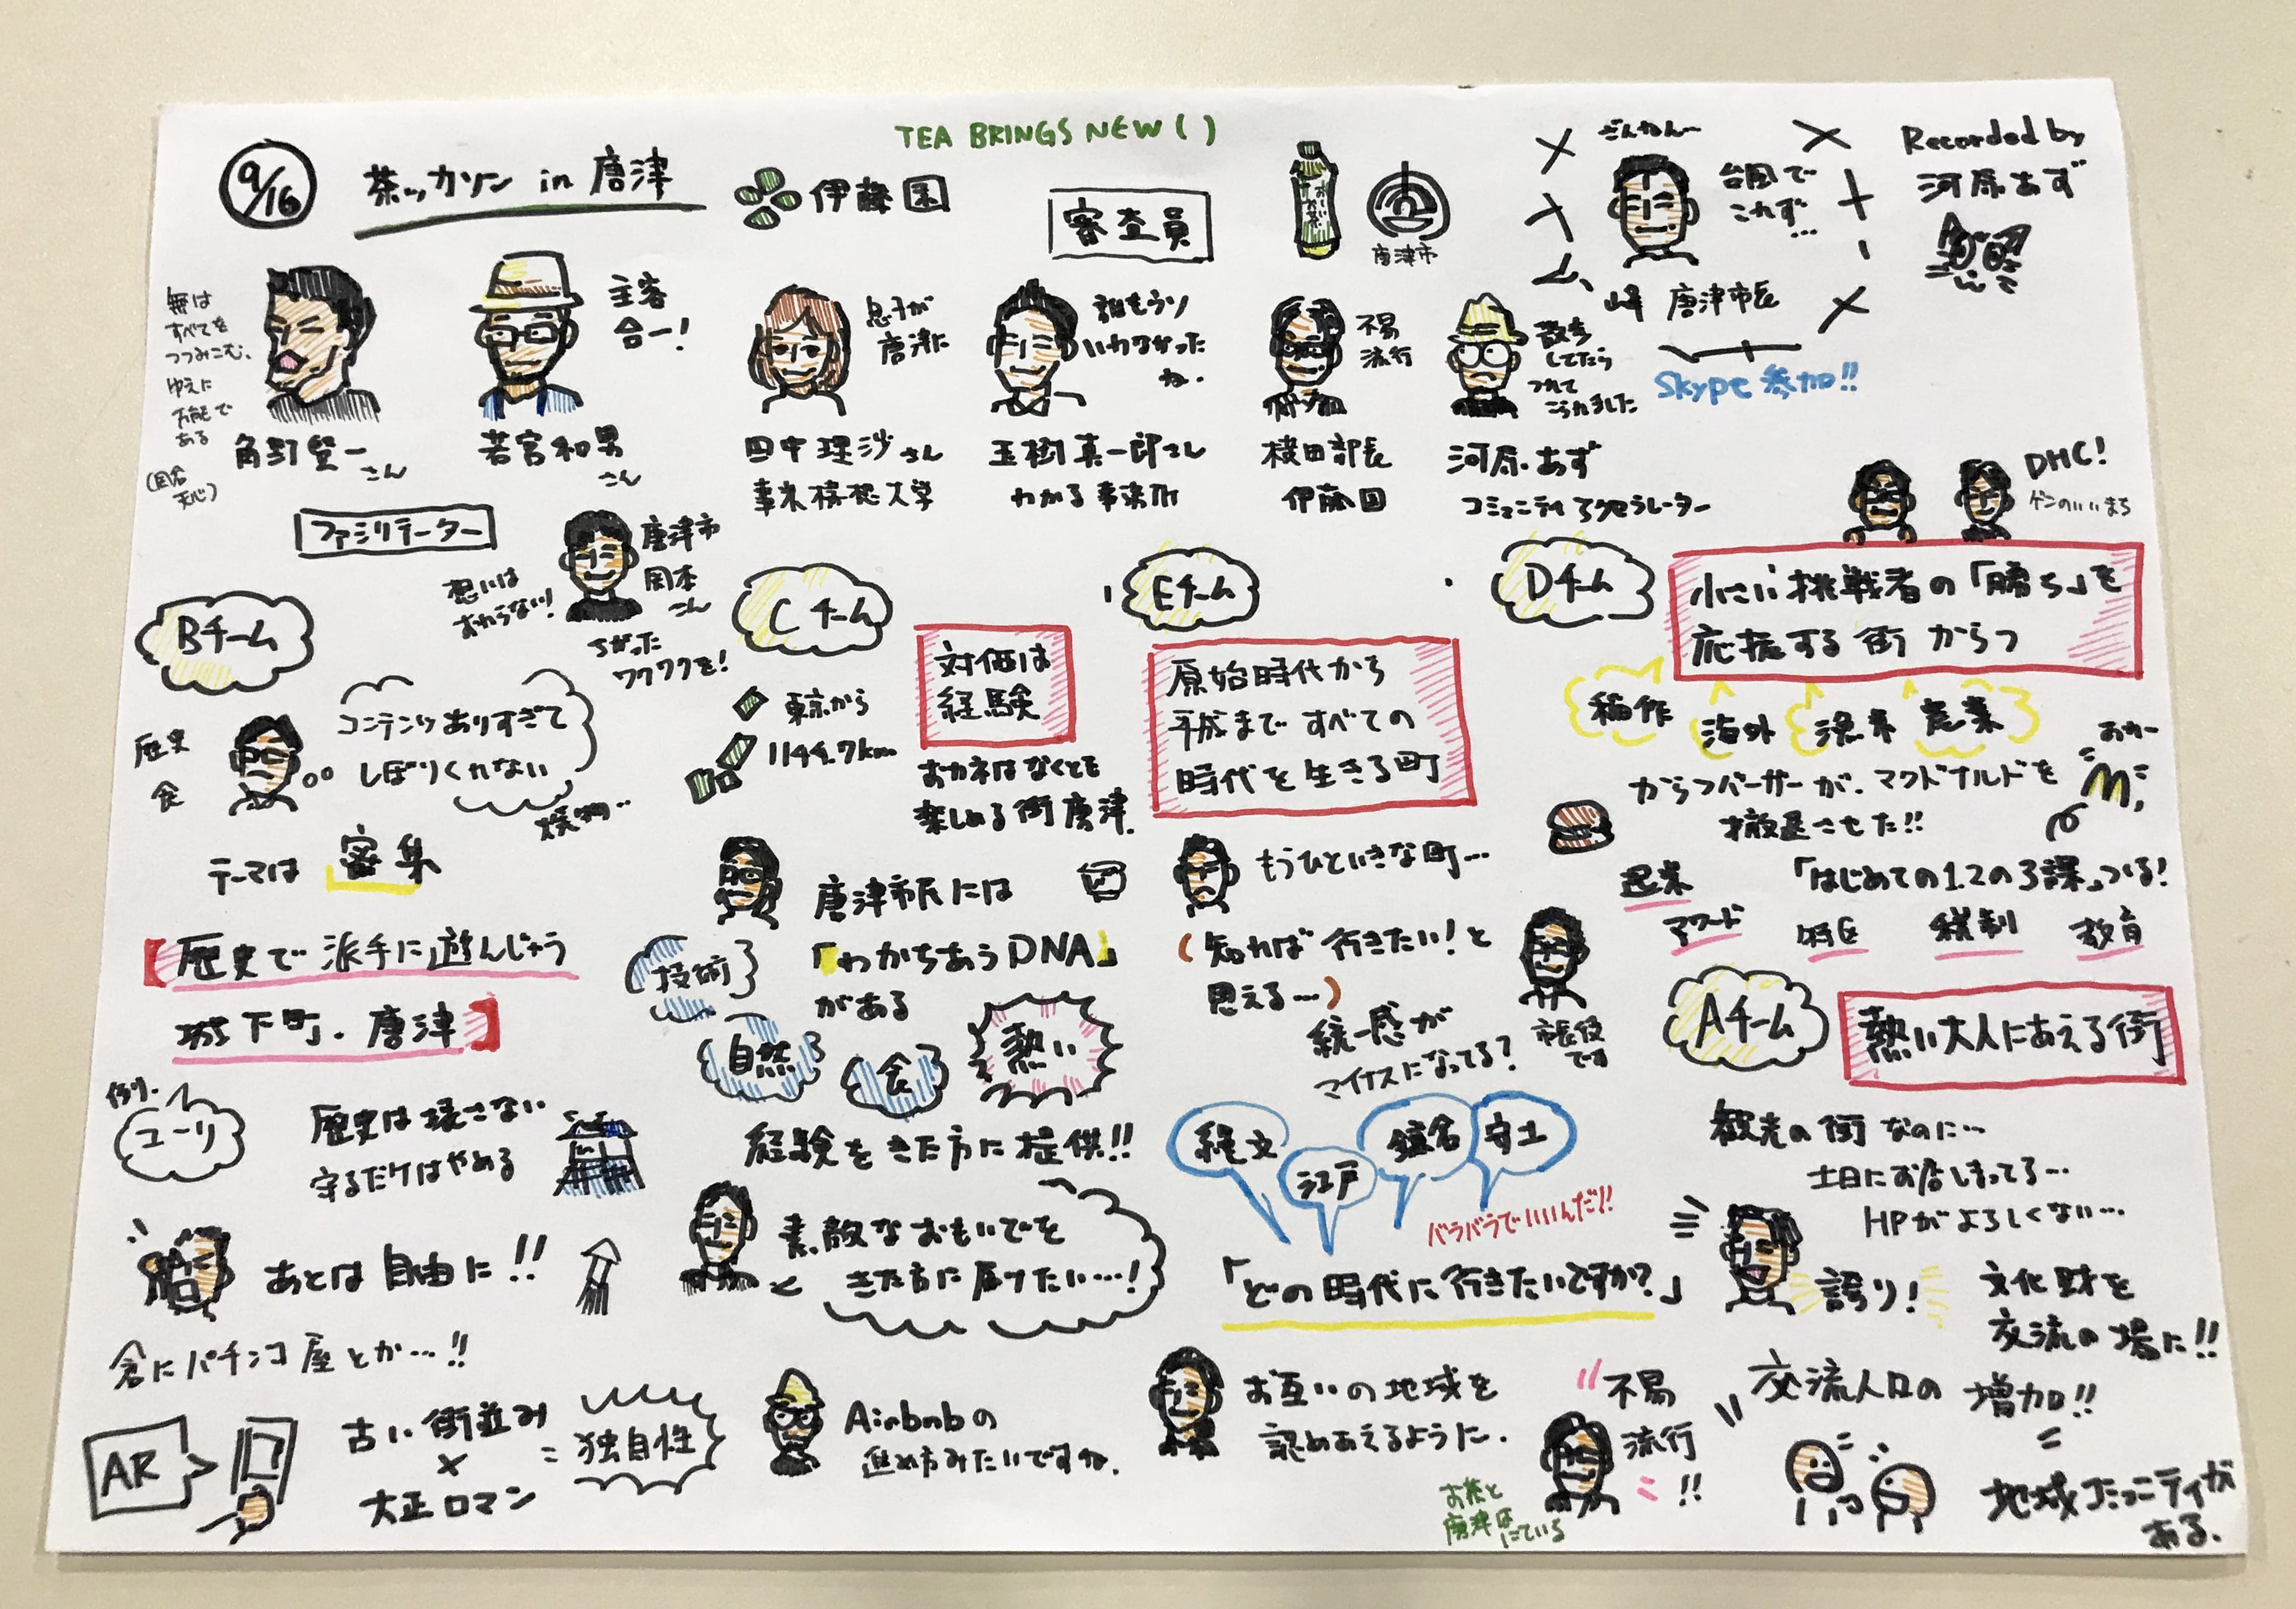 TEA BRINGS NEW ( )
9/16
茶ッカソン in 唐津
伊藤園
審査員
唐津市
ざんねんー
台風で
これず…
峰 唐津市長
Skype参加!!
Recorded by
河原あず
無は
すべてを
つつみこむ、
ゆえに
万能で
ある
主客
合一!
若宮和男
さん
さん
ファシリテーター
息子が
唐津に
田中理沙さん
事業構想大学
誰もうそ
いわなかった
ね.
玉樹真一郎さん
わかる事業所
不易
流行
部長
伊藤園
散歩
してたら
つれて
こられました
河原.あず
コミュニティアクセラレーター
想いは
おわらない!
唐津市
岡本
さん
ちがった
ワクワクを!
Bチーム
歴史
食
コンテンツありすぎて
しぼりくれない
テーマは 密集
歴史で派手に遊んじゃう
城下町.唐津
例.
ユーリ
歴史は壊さない
守るだけはやめる
あとは自由に!!
倉にパチンコ屋とか…!!
AR
古い街並み
×
大正ロマン
=独自性
Cチーム
東京から
1144.7km
対価は
経験
おカネはなくとも
楽しめる街唐津.
唐津市民には
「わかちあうDNA」
がある
技術
自然
食
熱い
経験をきた方に提供!!
素敵なおもいでを
きた方に届けたい…!
Airbnbの
進め方みたいですね.
Eチーム
原始時代から
平成まですべての
時代を生きる町
もうひといきな町…
(知れば行きたい!と
思える…)
統一感が
マイナスになってる?
市長役
です
縄文
江戸
鎌倉
安土
バラバラでいいんだ!!
「どの時代に行きたいですか?」
お互いの地域を
認めあえるように.
不易
流行
!!
お茶と
唐津は
にている
DHC!
ゲンのいいまち
Dチーム
小さい挑戦者の「勝ち」を
応援する街からつ
稲作
海外
漁業
産業
からつバーガーが、マクドナルドを
撤退させた!!
おわー
M
起業
アワード
「はじめての1.2の3課」つくる!
特区
税制
教育
Aチーム
熱い大人にあえる街
観光の街なのに…
土日にお店しまってる…
HPがよろしくない…
誇り!
文化財を
交流の場に!!
交流人口の増加!!
=
地域コミュニティが
ある.